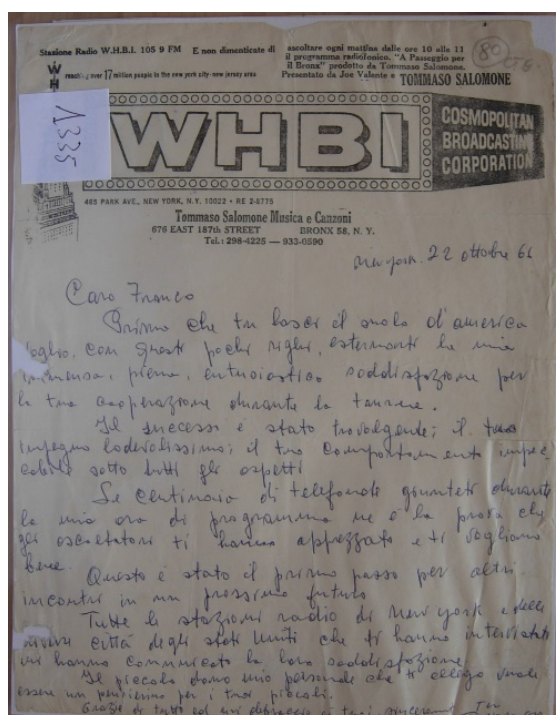 Stazione Radio W.H.B.I. 105 9 FM E non dimenticate di ascoltare ogni mattina dalle ore 10 alle 11
il programma radiofonico. "A Passeggio per
il Bronx" prodotto da Tommaso Salomone.
Presentato da Joe Valente e TOMMASO SALOMONE
80
reaching over 17 million people to the new york city-new jersey area
1335
WHBI
COSMOPOLITAN
BROADCASTING
CORPORATION
465 PARK AVE., NEW YORK, N.Y. 10022 • RE 2-6775
Tommaso Salomone Musica e Canzoni
676 EAST 187th STREET BRONX 58, N. Y.
Tel.: 298-4225 — 933-0590
New York. 22 ottobre 66
Caro Franco
Primo che tu lasci il suolo d'america
voglio, con questi pochi righi, esternarti la mia
immensa, piena, entusiastica soddisfazione per
la tua cooperazione durante la tournee.
Il successo è stato travolgente; il tuo
impegno lodevolissimo; il tuo comportamento impec
cabile sotto tutti gli aspetti
Le centinaia di telefonate giunteti durante
la mia ora di programma ne è la prova che
gli ascoltatori ti hanno apprezzato e ti vogliono
bene. Questo è stato il primo passo per altri
incontri in un prossimo futuro
Tutte le stazioni radio di New York e delle
città degli stati Uniti che ti hanno intervistato
mi hanno communicato la loro soddisfazione.
Il piccolo dono mio personale che ti allego vuole
essere un pensierino per i tuoi piccoli.
Grazie di tutto ed un abbraccio di tuoi